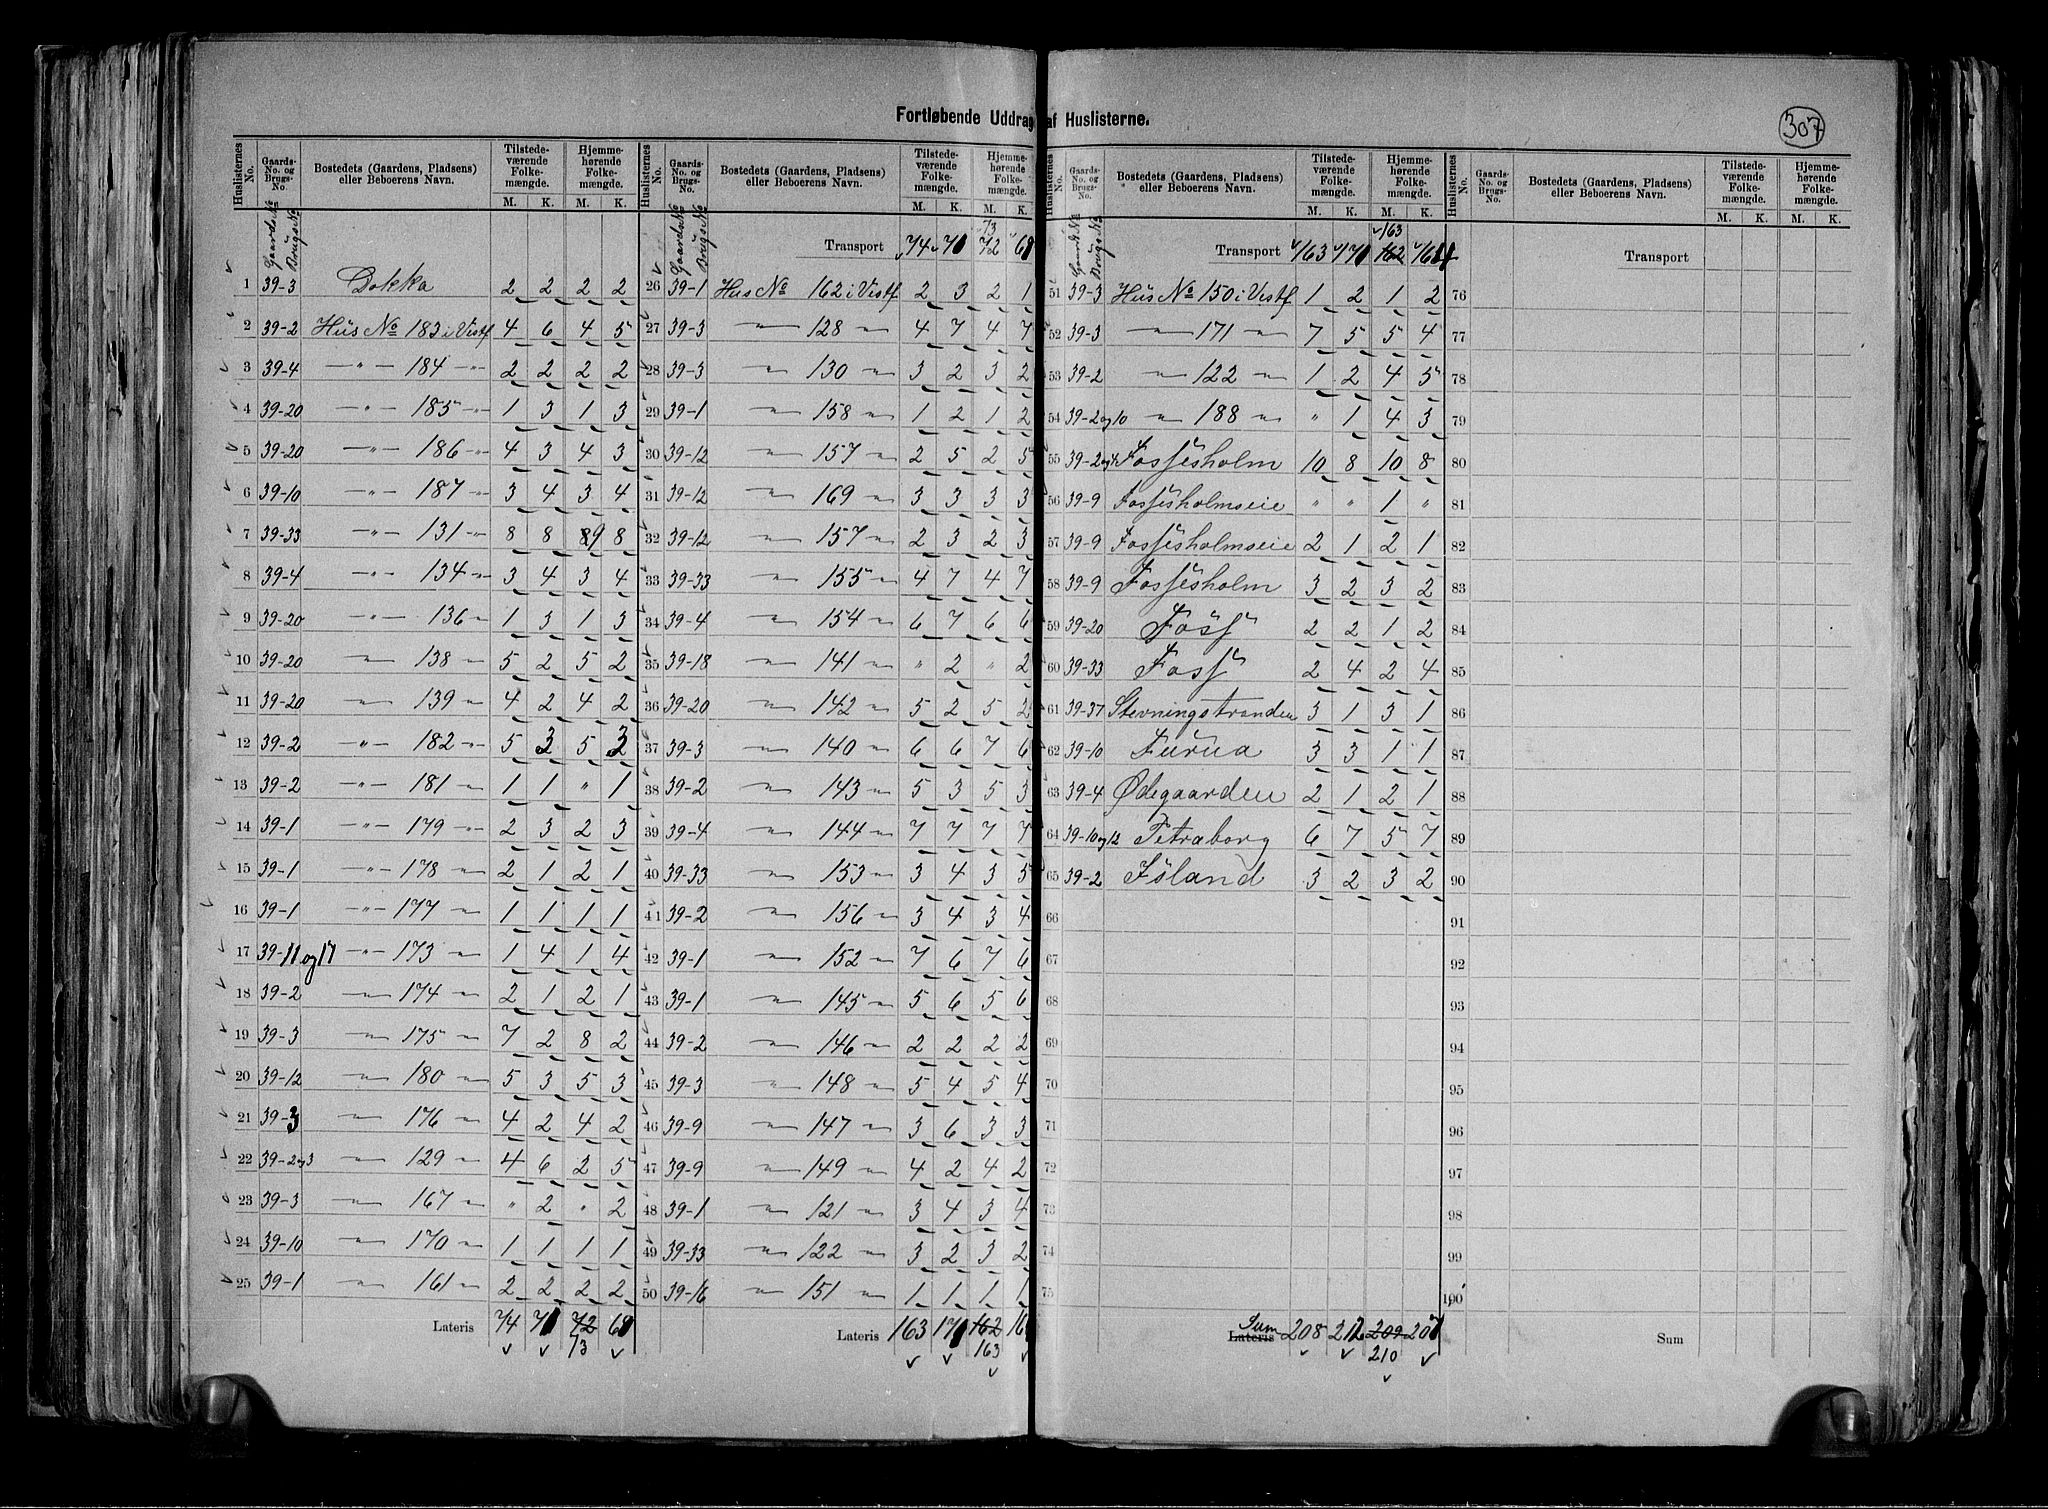 307
Fortløbende Uddrag af Huslisterne.
Huslisternes No. | Gaards-No. og Brugs-No. | Bostedets (Gaardens, Pladsens) eller Beboerens Navn. | Tilstedeværende Folkemængde. M. K. | Hjemmehørende Folkemængde. M. K.
Gaards No Brugs No
1 39-3 Dokka 2 2 2 2
2 39-2 Hus No 183 i Vestf 4 6 4 5
3 39-4 —"— 184 —"— 2 2 2 2
4 39-20 —"— 185 —"— 1 3 1 3
5 39-20 —"— 186 —"— 4 3 4 3
6 39-10 —"— 187 —"— 3 4 3 4
7 39-33 —"— 131 —"— 8 8 9 8
8 39-4 —"— 134 —"— 3 4 3 4
9 39-20 —"— 136 —"— 1 3 1 3
10 39-20 —"— 138 —"— 5 2 5 2
11 39-20 —"— 139 —"— 4 2 4 2
12 39-2 —"— 182 —"— 5 3 5 3
13 39-2 —"— 181 —"— 1 1 " 1
14 39-1 —"— 179 —"— 2 3 2 3
15 39-1 —"— 178 —"— 2 1 2 1
16 39-1 —"— 177 —"— 1 1 1 1
17 39-11 og 17 —"— 173 —"— 1 4 1 4
18 39-2 —"— 174 —"— 2 1 2 1
19 39-3 —"— 175 —"— 7 2 8 2
20 39-12 —"— 180 —"— 5 3 5 3
21 39-3 —"— 176 —"— 4 2 4 2
22 39-2 og 3 —"— 129 —"— 4 6 2 5
23 39-3 —"— 167 —"— " 2 " 2
24 39-10 —"— 170 —"— 1 1 1 1
25 39-1 —"— 161 —"— 2 2 2 2
Lateris 74 71 72 68
73
Huslisternes No. | Gaards-No. og Brugs-No. | Bostedets (Gaardens, Pladsens) eller Beboerens Navn. | Tilstedeværende Folkemængde. M. K. | Hjemmehørende Folkemængde. M. K.
Gaards No Brugs No
73
Transport 74 71 72 68
26 39-1 Hus No 162 i Vestf 2 3 2 1
27 39-3 —"— 128 —"— 4 7 4 7
28 39-3 —"— 130 —"— 3 2 3 2
29 39-1 —"— 158 —"— 1 2 1 2
30 39-12 —"— 157 —"— 2 5 2 5
31 39-12 —"— 169 —"— 3 3 3 3
32 39-12 —"— 157 —"— 2 3 2 3
33 39-33 —"— 155 —"— 4 7 4 7
34 39-4 —"— 154 —"— 6 7 6 6
35 39-18 —"— 141 —"— " 2 " 2
36 39-20 —"— 142 —"— 5 2 5 2
37 39-3 —"— 140 —"— 6 6 7 6
38 39-2 —"— 143 —"— 5 3 5 3
39 39-4 —"— 144 —"— 7 7 7 7
40 39-33 —"— 153 —"— 3 4 3 5
41 39-2 —"— 156 —"— 3 4 3 4
42 39-1 —"— 152 —"— 7 6 7 6
43 39-1 —"— 145 —"— 5 6 5 6
44 39-2 —"— 146 —"— 2 2 2 2
45 39-3 —"— 148 —"— 5 4 5 4
46 39-9 —"— 147 —"— 3 6 3 3
47 39-9 —"— 149 —"— 4 2 4 2
48 39-1 —"— 121 —"— 3 4 3 4
49 39-33 —"— 122 —"— 3 2 3 2
50 39-16 —"— 151 —"— 1 1 1 1
Lateris 163 171 162
163
Huslisternes No. | Gaards-No. og Brugs-No. | Bostedets (Gaardens, Pladsens) eller Beboerens Navn. | Tilstedeværende Folkemængde. M. K. | Hjemmehørende Folkemængde. M. K.
Gaards No Brugs No
163
Transport 163 171 162 164
51 39-3 Hus No 150 i Vestf 1 2 1 2
52 39-3 —"— 171 —"— 7 5 5 4
53 39-2 —"— 122 —"— 1 2 4 5
54 39-2 og 10 —"— 188 —"— " 1 4 3
55 39-2 og Fossesholm 10 8 10 8
56 39-9 Fossesholmseie " " 1 "
57 39-9 Fossesholmseie 2 1 2 1
58 39-9 Fossesholm 3 2 3 2
59 39-20 Foss 2 2 1 2
60 39-33 Foss 2 4 2 4
61 39-37 Stevningstranden 3 1 3 1
62 39-10 Furua 3 3 1 1
63 39-4 Ødegaarden 2 1 2 1
64 39-10 og 12 Petraborg 6 7 5 7
65 39-2 Island 3 2 3 2
66
67
68
69
70
71
72
73
74
75
Sum Lateris 208 212 209 207
210
Huslisternes No. | Gaards-No. og Brugs-No. | Bostedets (Gaardens, Pladsens) eller Beboerens Navn. | Tilstedeværende Folkemængde. M. K. | Hjemmehørende Folkemængde. M. K.
Transport
76
77
78
79
80
81
82
83
84
85
86
87
88
89
90
91
92
93
94
95
96
97
98
99
100
Sum